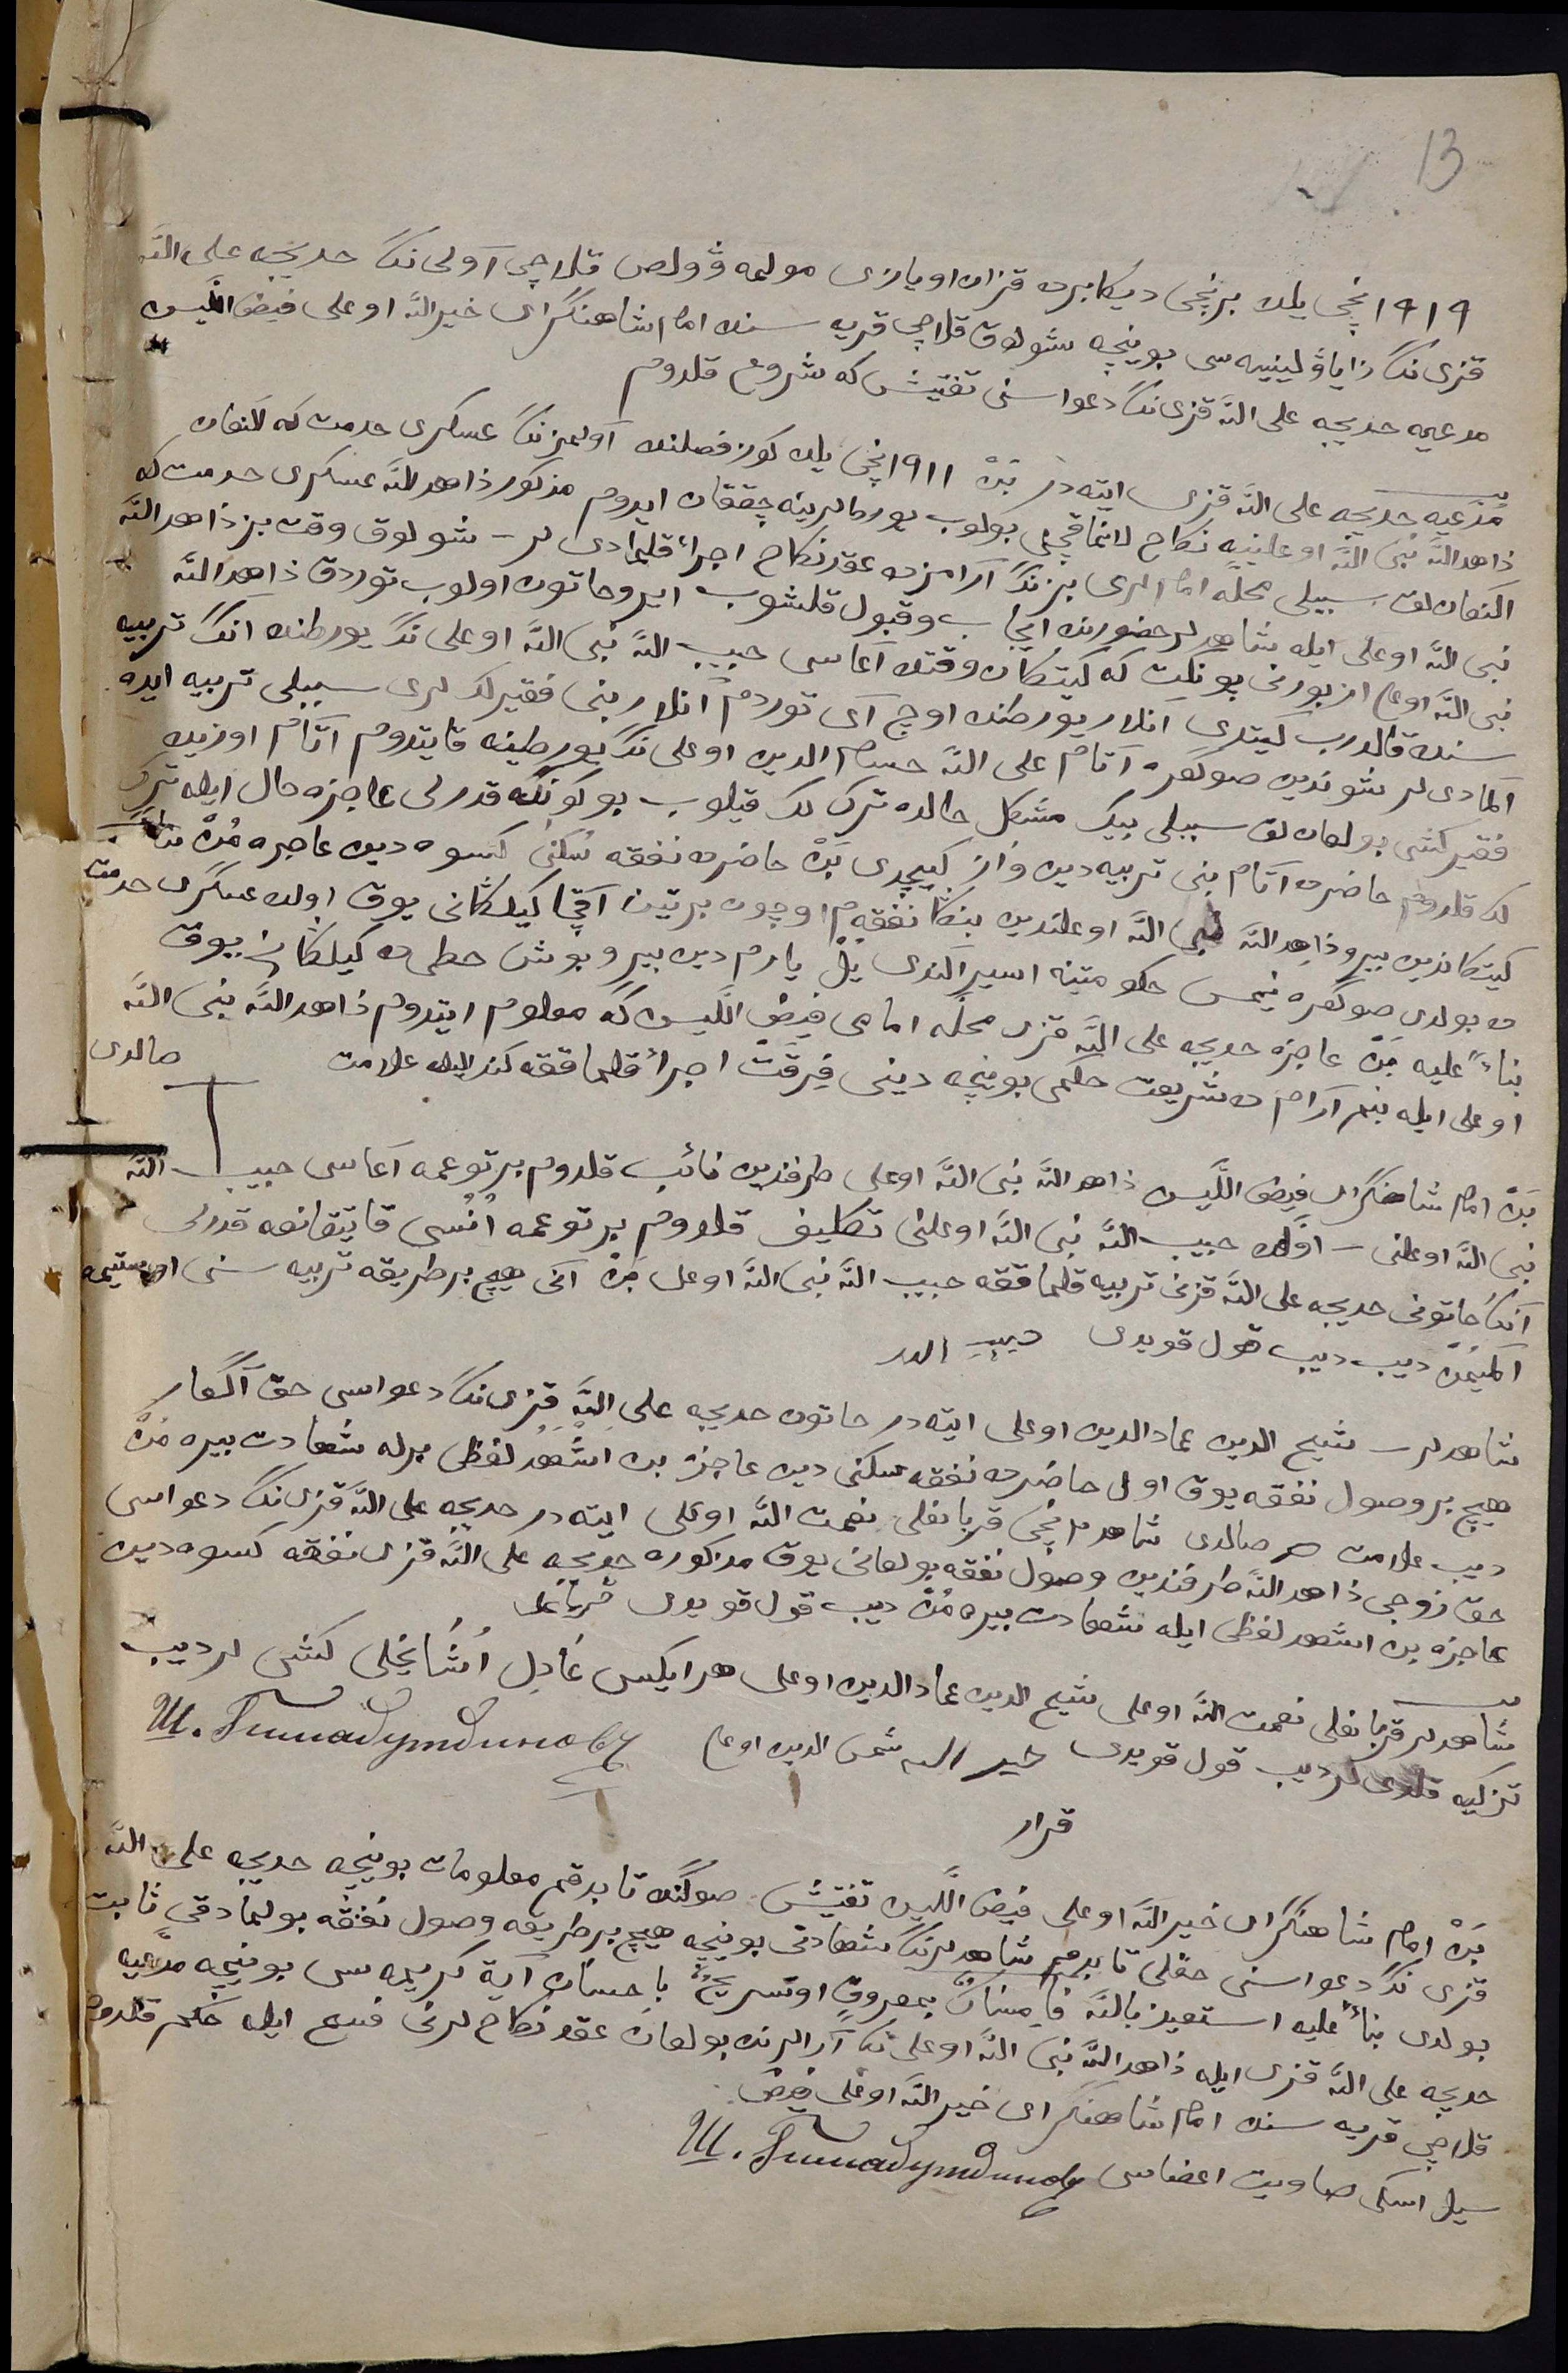 13
١٩١٩ نچی یلده برنچی دیکابرده قزان اویازی مولمه ۋولص قلاچی آولی ننک خدیجه علی اللّه
قزی ننک زایاۋلینییه سی بوینچه شولوق قلاچی قریه سنده امام شاهنگرای خیراللّه اوعلی فیض اللّیس
مدعیه خدیجه علی اللّه قزی ننک دعواسنی تفتیش که شروع قلدوم
مدّعیه خدیجه علی اللّه قزی ایته در بَنْ ١٩١١ نچی یلده کوز فصلنده آولمز ننک عسکری خدمت که آلنغان
ذاهداللّه نبی اللّه اوعلینه نکاح لانماقچی بولوب یورطلارینه چققان ایدوم مذکور ذاهداللّه عسکری خدمت که
آلنغان لق سببلی محلّه اماملری بزننک آرامزده عقد نکاح اجراء قلمادی لر - شولوق وقت بز ذاهداللّه
نبی اللّه اوعلی ایله شاهدلر حضورنده ایجاب وقبول قلشوب ایروخاتون اولوب توردق ذاهداللّه
نبی اللّه اوعلی از بورنی پونکت که کیتکان وقتده آغاسی حبیب اللّه نبی اللّه اوعلی ننک یورطنده اننک تربیه
سنده قالدرب کیتدی آنلار یورطنده اوچ آی توردم آنلار بنی فقیرلک لری سببلی تربیه ایده
آلمادی لر شوندین صوکغره آتام علی اللّه حسام الدین اوعلی ننک یورطینه قایتدوم آتام اوزیده
فقیر کشی بولغان لق سببلی بیک مشکل حالده ترک لک قیلوب بو کونکه قدرلی عاجزه حال ایله ترک
لک قلدوم حاضرده آتام بنی تربیه دین واز کیچدی بَنْ حاضرده نفقه سُکنیٰ کسوه دین عاجزه مُنْ
کیتکاندین بیرو ذاهداللّه نبی اللّه اوعلندین بنکا نفقه م اوچون بر تین آقچا کیلکانی یوق اولده عسکری خدمت
ده بولدی صوکغره نیمس حکومتینه اسیر آلندی یِلْ یارم دین بیرو بوش خطی ده کیلکانی یوق
بناءً علیه بَنْ عاجزه خدیجه علی اللّه قزی محلّه امامی فیض اللّیس که معلوم ایتدوم ذاهداللّه نبی اللّه
اوعلی ایله بنم آرامده شریعت حکمی بوینچه دینی فرقت اجراء قلماققه کندالیله علامت صالدی
بَنْ امام شاهنگرای فیض اللّیس ذاهداللّه نبی اللّه اوعلی طرفندین نائب قلدوم بر توعمه آغاسی حبیب اللّه
نبی اللّه اوعلنی - اوّلده حبیب اللّه نبی اللّه اوعلنی تکلیف قلدوم بر توعمه انُسی قایتقانعه قدرلی
آننک خاتونی خدیجه علی اللّه قزنی تربیه قلماققه حبیب اللّه نبی اللّه اوعلی بَنْ آنی هیچ بر طریقه تربیه سنی اوستیمه
آلمیمن دیب دیب قول قویدی حبیب اللّه
شاهدلر - شیخ الدین عماد الدین اوعلی ایته در خاتون خدیجه علی اللّه قزی ننک دعواسی حق آکعار
هیچ بر وصول نفقه یوق اول حاضرده نفقه سکنی دین عاجزه بن اشهد لفظی برله شهادت بیره مُنْ
دیب علامت صالدی شاهد ٢ نچی قربانعلی نعمت اللّه اوعلی ایته در خدیجه علی اللّه قزی ننک دعواسی
حق زوجی ذاهداللّه طرفندین وصول نفقه بولغانی یوق مذکوره خدیجه علی اللّه قزی نفقه کسوه دین
عاجزه بن اشهد لفظی ایله شهادت بیره مُنْ دیب قول قویدی قربانعلی
شاهدلر قربانعلی نعمت اللّه اوعلی شیخ الدین عماد الدین اوعلی هر ایکیسی عادل اُشانچلی کشی لر دیب
تزکیه قلدی لر دیب قول قویدی خیر اللّه شمس الدین اوعلی Ш. Гимадутдиновъ
قرار
بَنْ امام شاهنگرای خیراللّه اوعلی فیض اللّیس تفتیش صوکنده تابدقم معلومات بوینچه خدیجه علی اللّه
قزی ننک دعواسنی حقلی تابدم شاهدلرننک شهادتی بوینچه هیچ بر طریقه وصول نفقه بولمادقی ثابت
بولدی بناءً علیه استعیذ باللّه فامساک بمعروف اوتسریح باحسان آیة کریمه سی بوینچه مدّعیه
خدیجه علی اللّه قزی ایله ذاهداللّه نبی اللّه اوعلی ننک آرالرنده بولغان عقد نکاح لرنی فسخ ایله حکم قلدوم
قلاچی قریه سنده امام شاهنگرای خیراللّه اوعلی فیض
سیلسکی صاویت اعضاسی Ш. Гимадутдиновъ